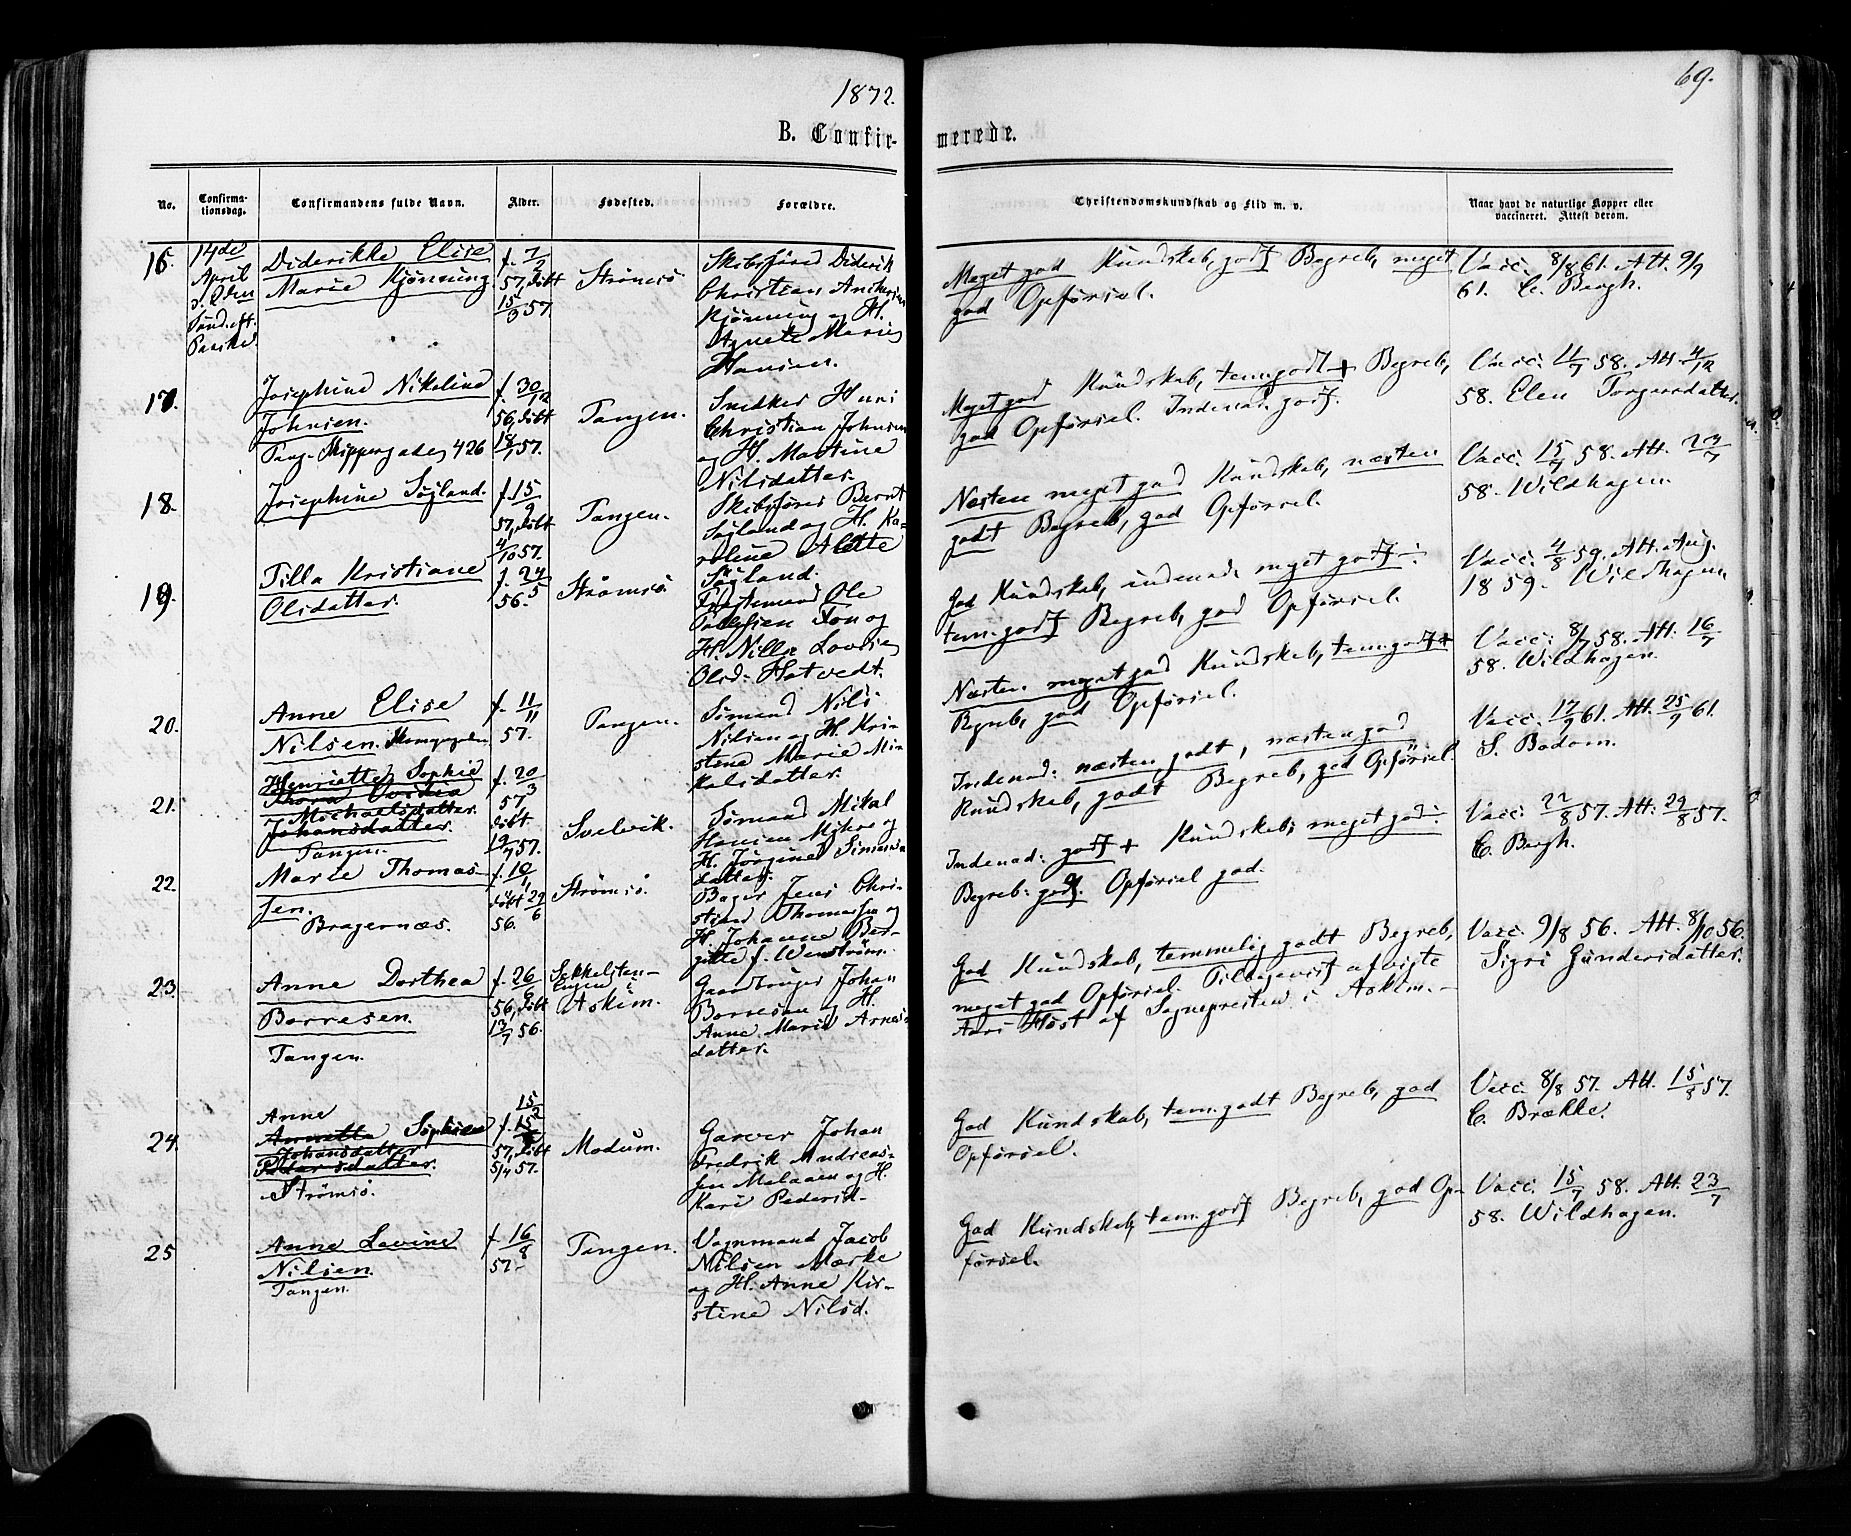 1872.
69.
B. Confir-
merede.
No.
Confirma-
tionsdag.
Confirmandens fulde Navn.
Alder.
Fødested.
Forældre.
Christendomskundskab og Flid m. v.
Naar havt de naturlige Kopper eller
vaccineret. Attest derom.
16.
14de
April
2. Søn
Pasche
Diderikke Elise
Marie Kjønning
57, døbt
15/3 57.
Strømsø
Skibsfører Diderik
Christian
Kjønning og H.
Agnete Marie
Hansen.
Meget god Kundskab, godt Begreb, meget
god Opførsel.
Vacc. 8/8 61. Att. 9/9
61. C. Bergh.
17.
Josephine Nikoline
Johnsen.
Tang. Skippergaden 426
f. 30/12
56, døbt
18/1 57.
Tangen.
Snedker Hans
Christian Johnsen
og H. Martine
Nilsdatter.
Meget god Kundskab, tem. godt + Begreb,
god Opførsel. Indenad: godt.
58. Elen Torgersdatter.
18.
Josephine Søyland.
f. 15/9
57, døbt
4/10 57.
Tangen.
Skibsfører Bernt
Søyland og H. Ka-
roline Alette
Søyland.
Næsten meget god Kundskab, næsten
godt Begreb, god Opførsel.
Vacc. 15/7 58. Att. 23/7
58. Wildhagen.
19.
Tilla Kristiane
Olsdatter.
f. 24/5
56.
Strømsø
Ole
og
H. Nille Lovise
Olsd. Hotvedt.
God Kundskab, indenad: meget godt ÷
tem. godt Begreb, god Opførsel.
Vacc. 4/8 59. Att. Aug.
1859. Wildhagen.
20.
Anne Elise
Nilsen.
f. 11/11
57.
Tangen.
Sømand Nils
Nilsen og H. Kri-
stine Marie Mi-
kelsdatter.
Næsten meget god Kundskab, tem. godt +
Begreb, god Opførsel.
Vacc. 8/7 58. Att. 16/7
58. Wildhagen.
21.
Henriette Sophie
Michaelsdatter.
Johansdatter.
Tangen.
f. 20/3
57
døbt
19/7 57.
Svelvik.
Sømand Mikal
Hansen og
H. Jørgine Simens-
datter.
Indenad: næsten godt, næsten god
Kundskab, godt Begreb, god Opførsel.
Vacc. 17/9 61. Att. 25/9 61.
S. Bodom.
22.
Marie Thomas-
sen.
Bragernæs.
f. 10/1
døbt 29/6
56.
Strømsø.
Bager Jens Chri-
stian Thomassen og
H. Johanne Ber-
gitte f. Wenstrøm.
Indenad: godt + Kundskab: meget god ÷
Begreb: godt. Opførsel god.
Vacc. 22/8 57. Att. 29/8 57.
C. Bergh.
23.
Anne Dorthea
Borresen.
Tangen.
f. 26/6
56, døbt
13/7 56.
Askim.
Gaardbruger Johan
Borresen og H.
Anne Marie Arnes-
datter.
God Kundskab, temmelig godt Begreb,
meget god Opførsel. Tilbagevist af vigte
Høst af Sognepresten i Askim.
Vacc. 9/8 56. Att. 8/10 56.
Sigri Gundersdatter.
24.
Anne
Annette Sophie
Johansdatter
Pedersdatter.
Strømsø.
15/2
f. 15
57, døbt
5/4 57.
Modum.
Garver Johan
Fredrik Andreas-
sen Melaaen og H.
Kari Pedersd.
God Kundskab, tem. godt Begreb, god
Opførsel.
Vacc. 8/8 57. Att. 15/8 57.
C. Brække.
25
Anne Lovine
Nilsen.
Tangen.
f. 16/8
57.
Tangen.
Vognmand Jacob
Nilsen Mørke
og H. Anne Kir-
stine Nilsd.
God Kundskab, tem. godt Begreb, god Op-
førsel.
Vacc. 15/7 58. Att. 23/7
58. Wildhagen.